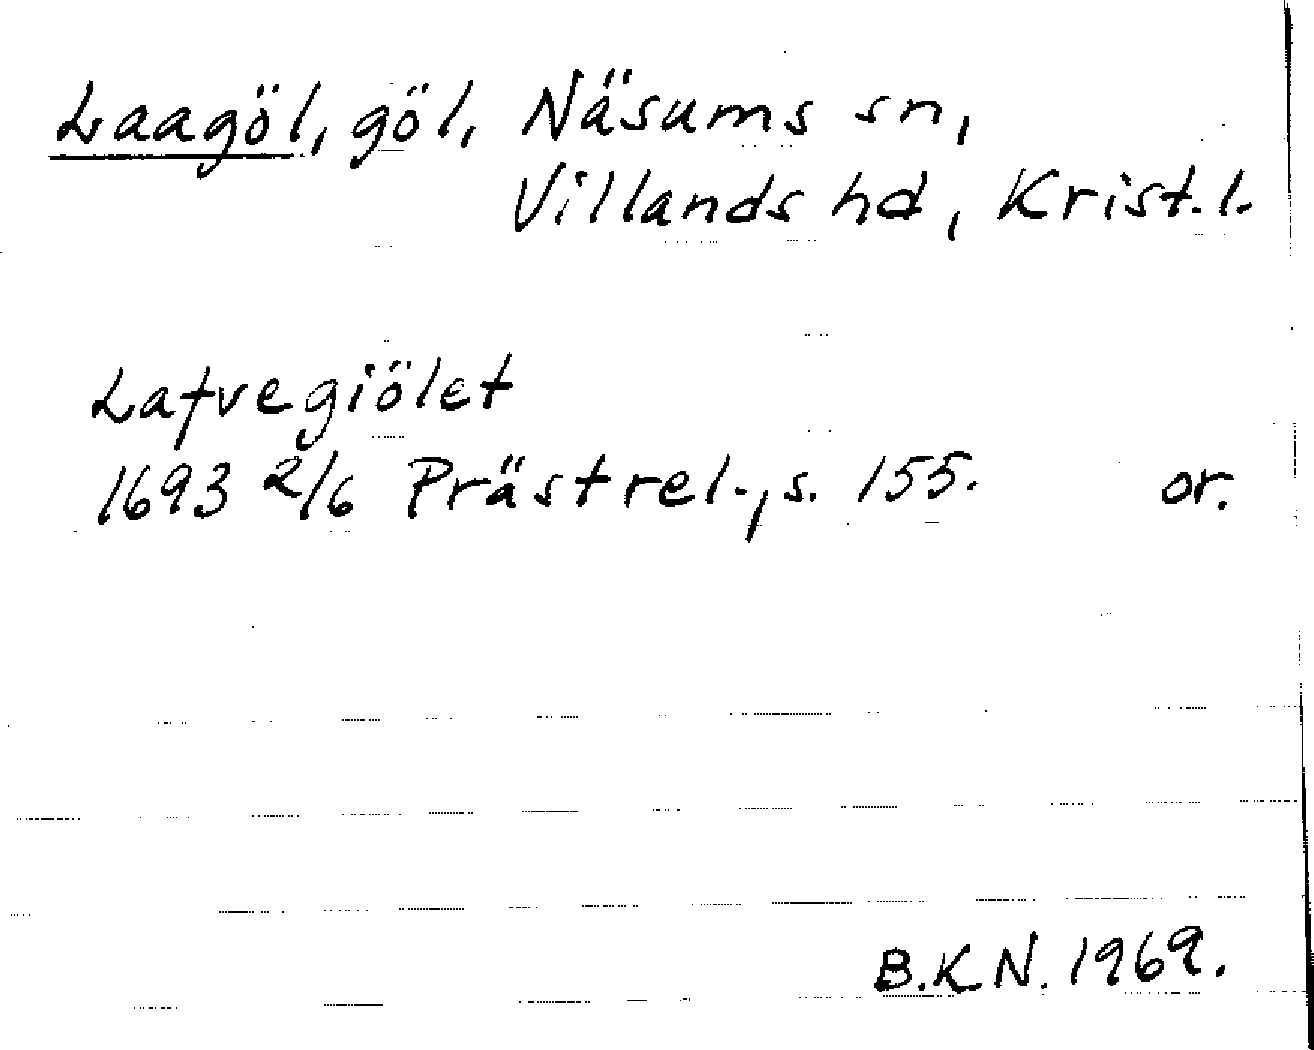 Laagöl, göl, Näsums sn,
Villands hd, Krist.l.
Lafvegiölet
1693 2/6 Prästrel., s. 155. or.
B.K.N. 1969.